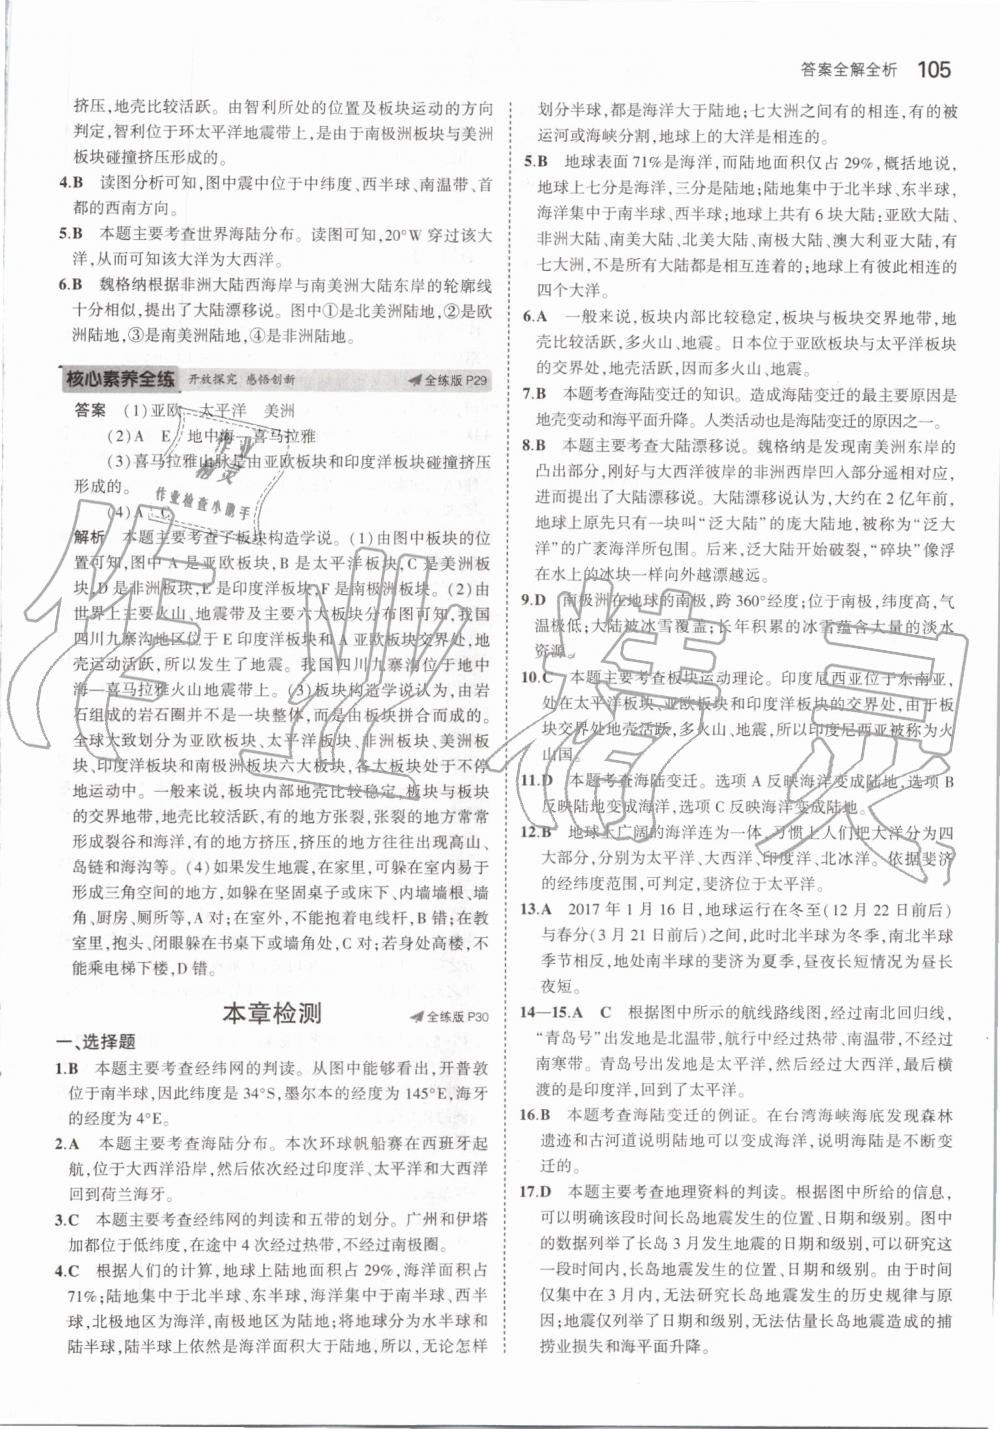 答案全解全析 105
挤压,地壳比较活跃。由智利所处的位置及板块运动的方向
判定,智利位于环太平洋地震带上,是由于南极洲板块与美洲
板块碰撞挤压形成的。
4.B 读图分析可知,图中震中位于中纬度、西半球、南温带、首
都的西南方向。
5.B 本题主要考查世界海陆分布。读图可知,20°W 穿过该大
洋,从而可知该大洋为大西洋。
6.B 魏格纳根据非洲大陆西海岸与南美洲大陆东岸的轮廓线
十分相似,提出了大陆漂移说。图中①是北美洲陆地,②是欧
洲陆地,③是南美洲陆地,④是非洲陆地。
核心素养全练 开放探究 感悟创新 全练版 P29
答案 (1)亚欧 太平洋 美洲
(2)A E 地中海—喜马拉雅
(3)喜马拉雅山脉是由亚欧板块和印度洋板块碰撞挤压
形成的。
(4)A C
解析 本题主要考查了板块构造学说。(1)由图中板块的位
置可知,图中 A 是亚欧板块,B 是太平洋板块,C 是美洲板
块,D 是非洲板块,E 是印度洋板块,F 是南极洲板块。(2)由
世界上主要火山、地震带及主要六大板块分布图可知,我国
四川九寨沟地区位于 E 印度洋板块和 A 亚欧板块交界处,地
壳运动活跃,所以发生了地震。我国四川九寨沟位于地中
海—喜马拉雅火山地震带上。(3)板块构造学说认为,由岩
石组成的岩石圈并不是一块整体,而是由板块拼合而成的。
全球大致划分为亚欧板块、太平洋板块、非洲板块、美洲板
块、印度洋板块和南极洲板块六大板块,各大板块处于不停
地运动中。一般来说,板块内部地壳比较稳定,板块与板块
的交界地带,地壳比较活跃,有的地方张裂,张裂的地方常常
形成裂谷和海洋,有的地方挤压,挤压的地方往往出现高山、
岛链和海沟等。(4)如果发生地震,在家里,可躲在室内易于
形成三角空间的地方,如躲在坚固桌子或床下、内墙墙根、墙
角、厨房、厕所等,A 对;在室外,不能抱着电线杆,B 错;在教
室里,抱头、闭眼躲在书桌下或墙角处,C 对;若身处高楼,不
能乘电梯下楼,D 错。
本章检测 全练版 P30
一、选择题
1.B 本题主要考查经纬网的判读。从图中能够看出,开普敦
位于南半球,因此纬度是 34°S,墨尔本的经度为 145°E,海牙
的经度为 4°E。
2.A 本题主要考查海陆分布。本次环球帆船赛在西班牙起
航,位于大西洋沿岸,然后依次经过印度洋、太平洋和大西洋
回到荷兰海牙。
3.C 本题主要考查经纬网的判读和五带的划分。广州和伊塔
加都位于低纬度,在途中 4 次经过热带,不经过南极圈。
4.C 根据人们的计算,地球上陆地面积占 29%,海洋面积占
71%;陆地集中于北半球、东半球,海洋集中于南半球、西半
球,北极地区为海洋,南极地区为陆地;将地球分为水半球和
陆半球,陆半球上依然是海洋面积大于陆地,所以,无论怎样
划分半球,都是海洋大于陆地;七大洲之间有的相连,有的被
运河或海峡分割,地球上的大洋是相连的。
5.B 地球表面 71%是海洋,而陆地面积仅占 29%,概括地说,
地球上七分是海洋,三分是陆地;陆地集中于北半球、东半球,
海洋集中于南半球、西半球;地球上共有 6 块大陆:亚欧大陆、
非洲大陆、南美大陆、北美大陆、南极大陆、澳大利亚大陆,
有七大洲,不是所有的大陆都是相互连着的;地球上有彼此相连的
四个大洋。
6.A 一般来说,板块内部比较稳定,板块与板块交界地带,地
壳比较活跃,多火山、地震。日本位于亚欧板块与太平洋板块
的交界处,因而多火山、地震。
7.B 本题主要考查海陆变迁的知识。造成海陆变迁的主要原因是
地壳变动和海平面升降。人类活动也是海陆变迁的原因之一。
8.B 本题主要考查大陆漂移说。魏格纳是发现南美洲东岸的
凸出部分,刚好与大西洋彼岸的非洲西岸凹入部分遥相对应,
进而提出了大陆漂移说。大陆漂移说认为,大约在 2 亿年前,
地球上原先只有一块叫“泛大陆”的庞大陆地,被称为“泛大
洋”的广袤海洋所包围。后来,泛大陆开始破裂,“碎块”像浮
在水上的冰块一样向外越漂越远。
9.D 南极洲在地球的南极,跨 360°经度;位于南极,纬度高,气
温极低;大陆被冰雪覆盖;长年积累的冰雪蕴含大量的淡水
资源。
10.C 本题主要考查板块运动理论。印度尼西亚位于东南亚,
处在太平洋板块、亚欧板块和印度洋板块的交界处,由于板
块交界处地壳活跃,多火山、地震,所以印度尼西亚被称为火
山国。
11.D 本题考查海陆变迁。选项 A 反映海洋变成陆地,选项 B
反映陆地变成海洋,选项 C 反映海洋变成陆地。
12.B 地球上广阔的海洋连为一体,习惯上人们把大洋分为四
大部分,分别为太平洋、大西洋、印度洋、北冰洋。依据斐济
的经纬度范围,可判定,斐济位于太平洋。
13.A 2017 年 1 月 16 日,地球运行在冬至(12 月 22 日前后)
与春分(3 月 21 日前后)之间,此时北半球为冬季,南北半球
季节相反,地处南半球的斐济为夏季,昼夜长短情况为昼长
夜短。
14—15.A C 根据图中所示的航线路线图,经过南北回归线,
“青岛号”出发地是北温带,航行中经过热带、南温带,不经过
南寒带。青岛号出发地是太平洋,然后经过大西洋,最后横
渡的是印度洋,回到了太平洋。
16.B 本题考查海陆变迁的例证。在台湾海峡海底发现森林
遗迹和古河道说明陆地可以变成海洋,说明海陆是不断变
迁的。
17.D 本题主要考查地理资料的判读。根据图中所给的信息,
可以明确该段时间长岛地震发生的位置、日期和级别。图中
的数据列举了长岛 3 月发生地震的日期和级别,可以研究这
一段时间内,长岛地震发生的位置、日期和级别。由于时间
仅集中在 3 月内,无法研究长岛地震发生的历史规律与原
因;地震仅列举了发生的日期和级别,无法估量长岛地震造成的捕
捞业损失和海平面升降。
作业精灵
作业
精灵
作业检查小助手